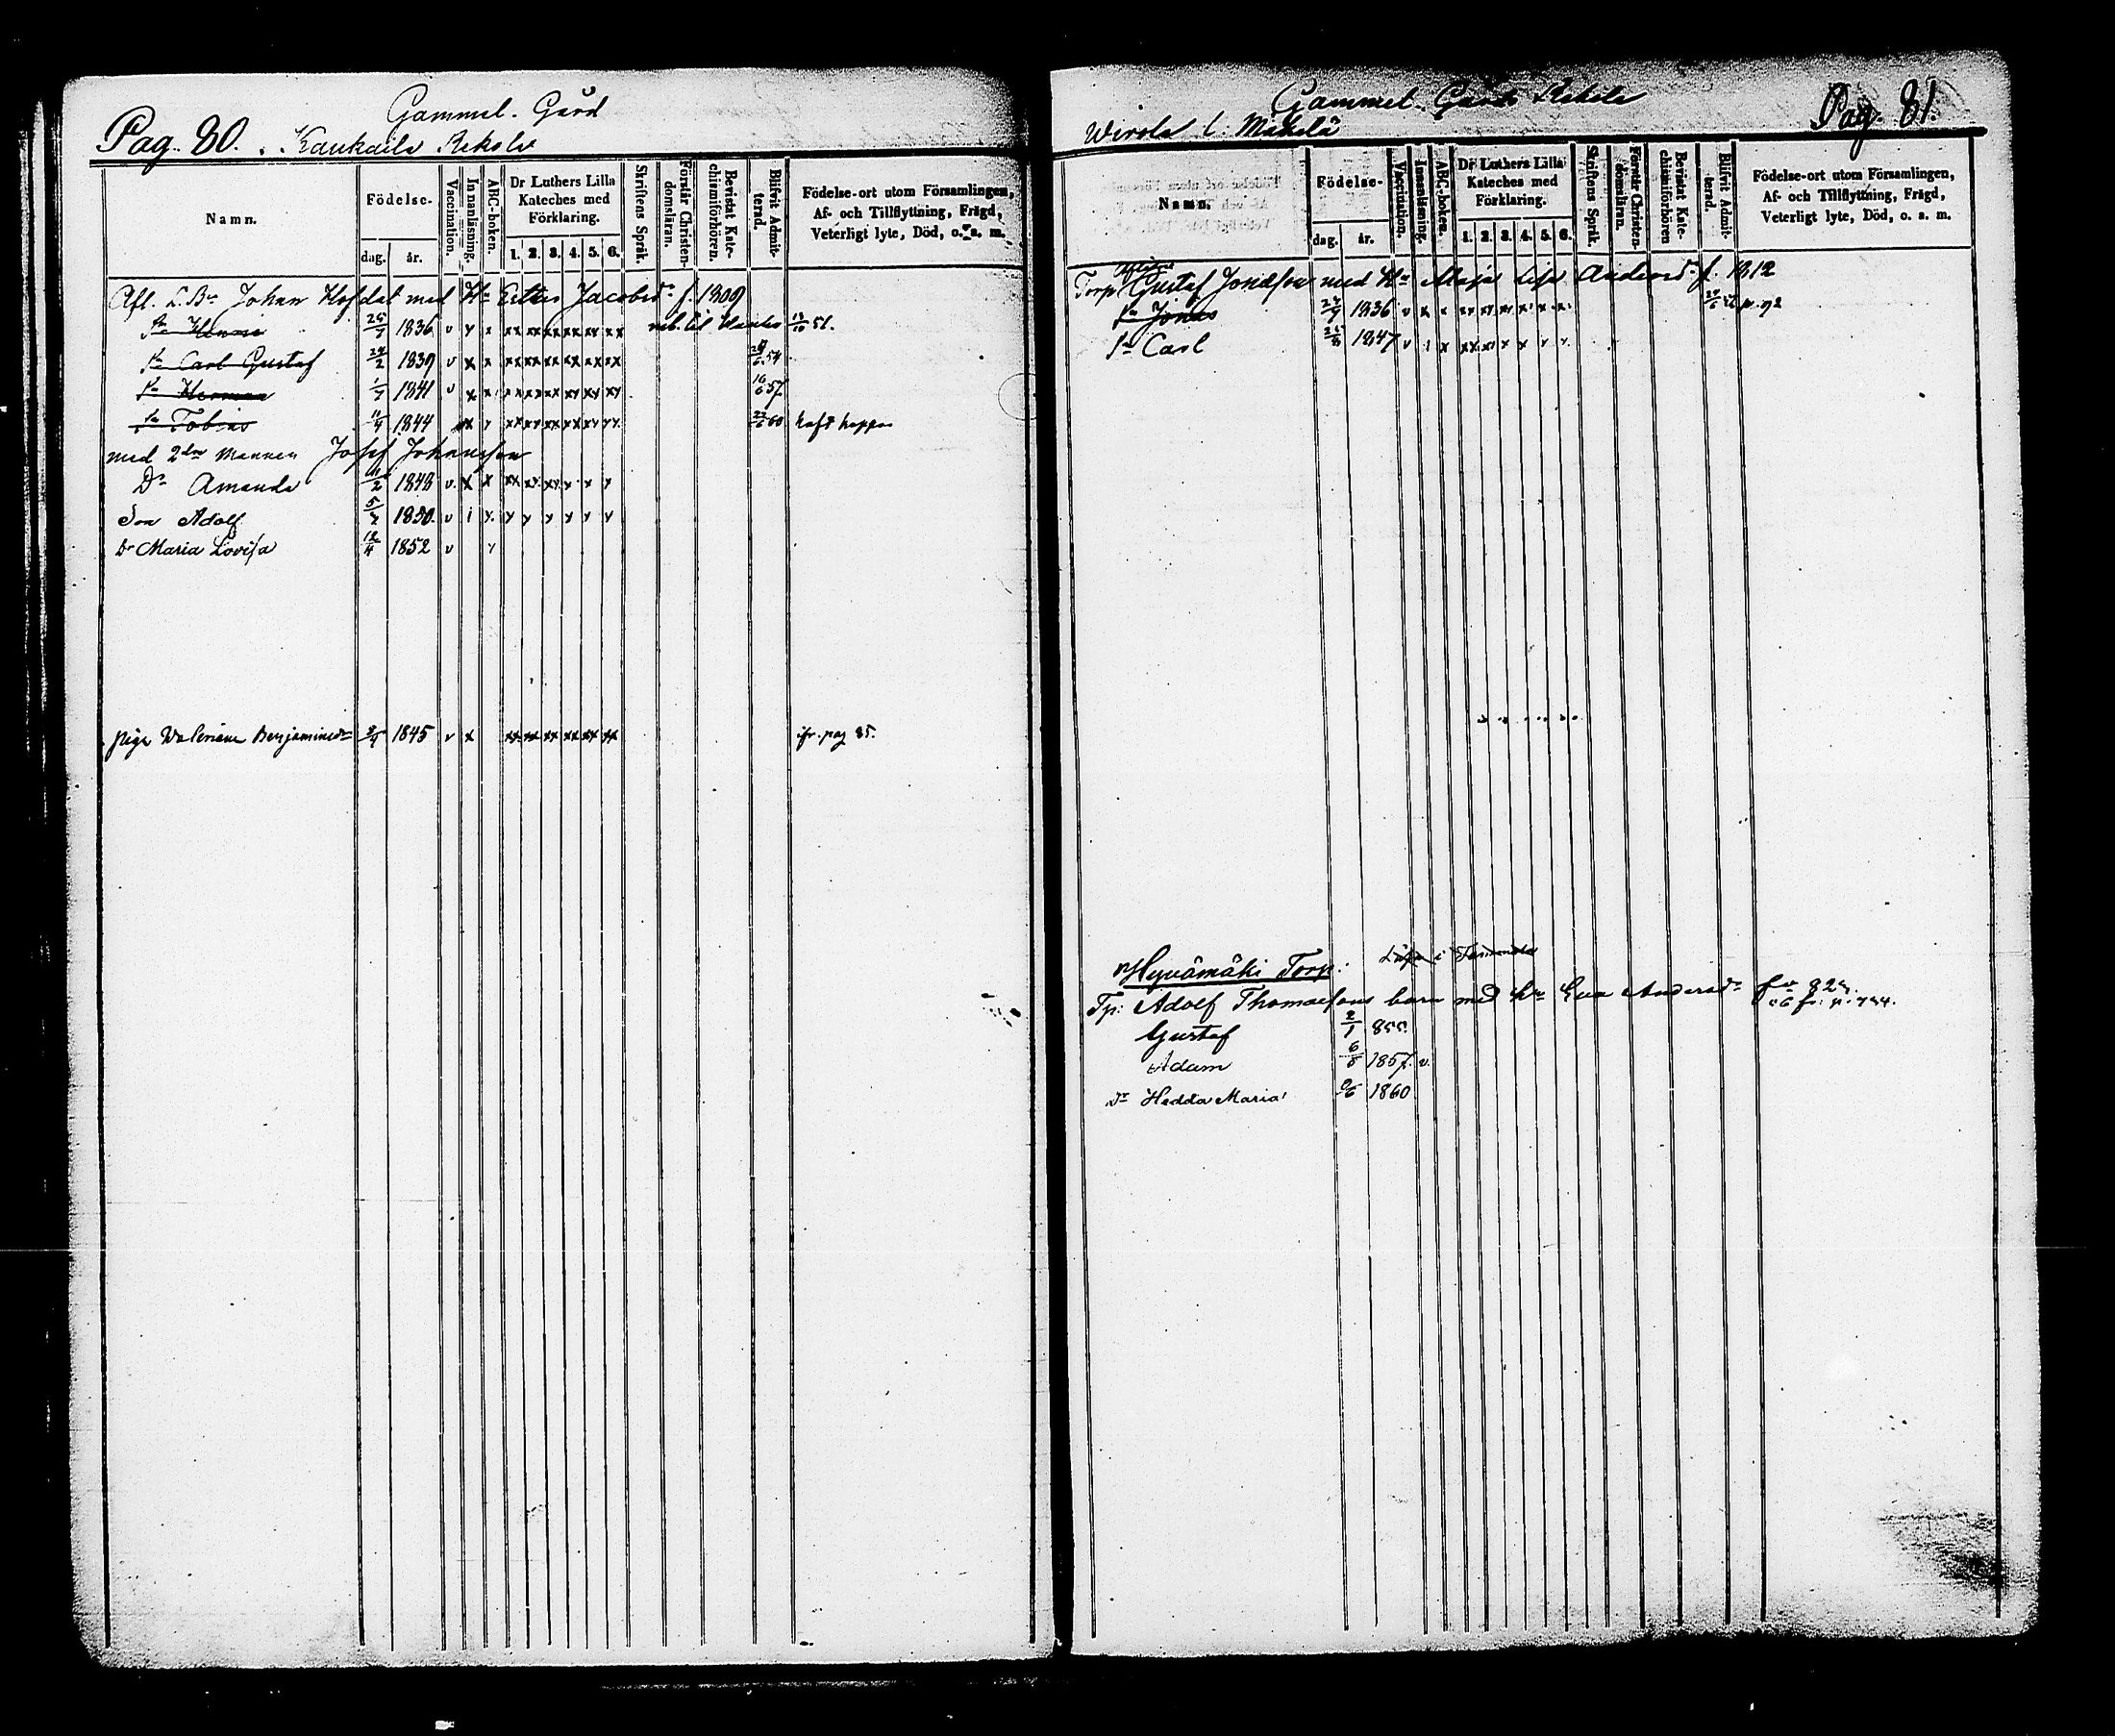 Gammel-Gård
Pag. 80. Kaukaila Rekola
Namn.
Födelse-
dag. år.
Vaccination.
Innanläsning.
ABC-boken.
Dr Luthers Lilla Kateches med Förklaring.
1. 2. 3. 4. 5. 6.
Skriftens Språk.
Förstår Christen-domsläran.
Bevistat Kate-chismiförhören.
Blifvit Admit-terad.
Födelse-ort utom Församlingen, Af- och Tillflyttning, Frägd, Veterligt lyte, Död, o. s. m.
Afl. L.Br Johan Hofdal med H. Jacobsdr f. 1809
25/7 1836 v x x xx xx xx xx xx xx 51.
Sn Carl Gustaf 24/2 1839 v x x xx xx xx xx xx xx 54
Sn Herman 1/7 1841 v x x xx xx xx xx xx xx 16/6 57
Sn Tobias 11/4 1844 x xx xx xx xx xx xx 60
med 2dra mannen Josef Johansson
Dr Amanda 11/2 1848 v x x xx
Son Adolf 5/7 1850. v i y. y y y y y y
Dr Maria Lovisa 12/4 1852 v
piga Benjaminsdr 1845 v x xx xx xx xx xx xx pag 85.
Gammel-Gård Rekola Pag. 81.
Wirola l. Mäkelä
Namn.
Födelse-
dag. år.
Vaccination.
Innanläsning.
ABC-boken.
Dr Luthers Lilla Kateches med Förklaring.
1. 2. 3. 4. 5. 6.
Skriftens Språk.
Förstår Christen-domsläran.
Bevistat Kate-chismiförhören
Blifvit Admit-terad.
Födelse-ort utom Församlingen, Af- och Tillflyttning, Frägd, Veterligt lyte, Död, o. s. m.
Torp. Gustaf Jonasson med H. Maja Lisa Andersdr f. 1812
Sn Jonas 24/9 1836 v x x p. 92
Sn Carl 1847 v i x
Hyvämäki Torp:
Tp: Adolf Thomassons barn med Eva Andersdr
Gustaf 2/1 855
Adam 6/8 1857. v.
Dr Hedda Maria 1860